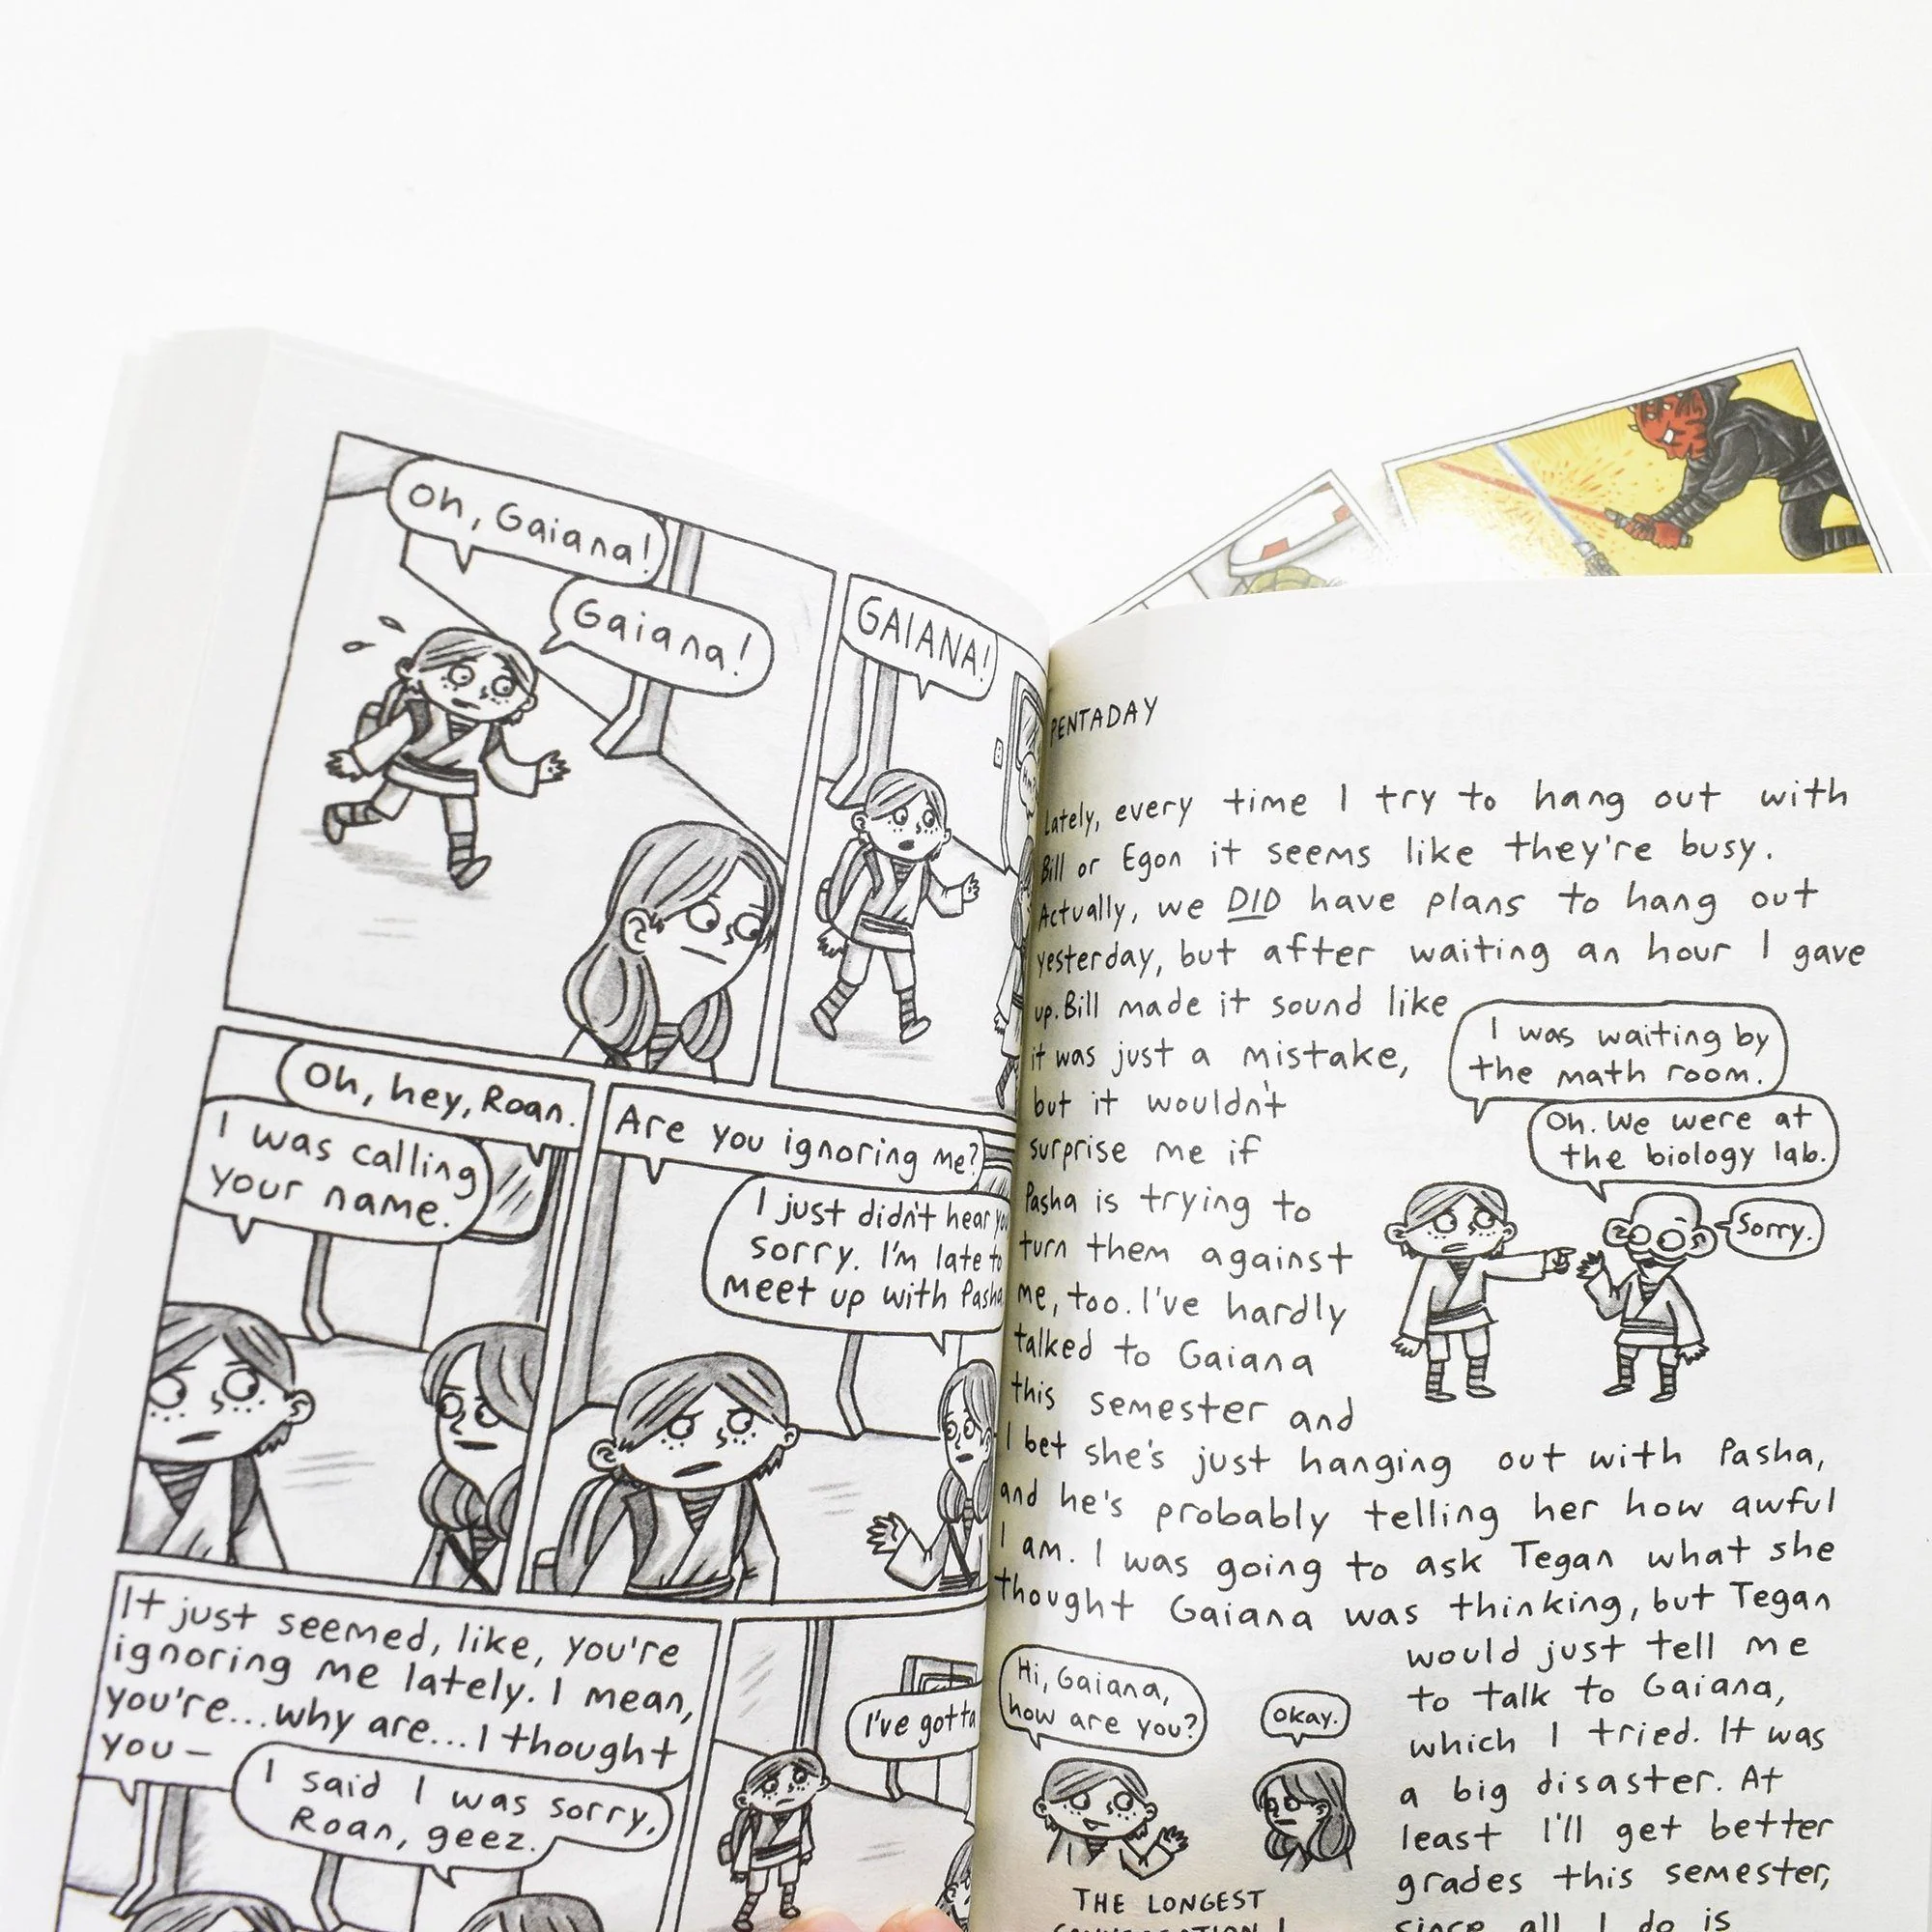 Oh, Gaiana!
Gaiana!
GAIANA!
Oh, hey, Roan.
I was calling
your name.
Are you ignoring me?
I just didn't hear you
sorry. I'm late to
meet up with Pasha
It just seemed, like, you're
ignoring me lately. I mean,
you're...why are...I thought
you—
I said I was sorry,
Roan, geez.
I've gotta
PENTADAY
Lately, every time I try to hang out with
Bill or Egon it seems like they're busy.
Actually, we DID have plans to hang out
yesterday, but after waiting an hour I gave
up. Bill made it sound like
it was just a mistake,
but it wouldn't
surprise me if
Pasha is trying to
turn them against
me, too. I've hardly
talked to Gaiana
this semester and
I bet she's just hanging out with Pasha,
and he's probably telling her how awful
I am. I was going to ask Tegan what she
thought Gaiana was thinking, but Tegan
would just tell me
to talk to Gaiana,
which I tried. It was
a big disaster. At
least I'll get better
grades this semester,
since all I do is
I was waiting by
the math room.
Oh. We were at
the biology lab.
Sorry.
Hi, Gaiana,
how are you?
okay.
THE LONGEST
CONVERSATION I